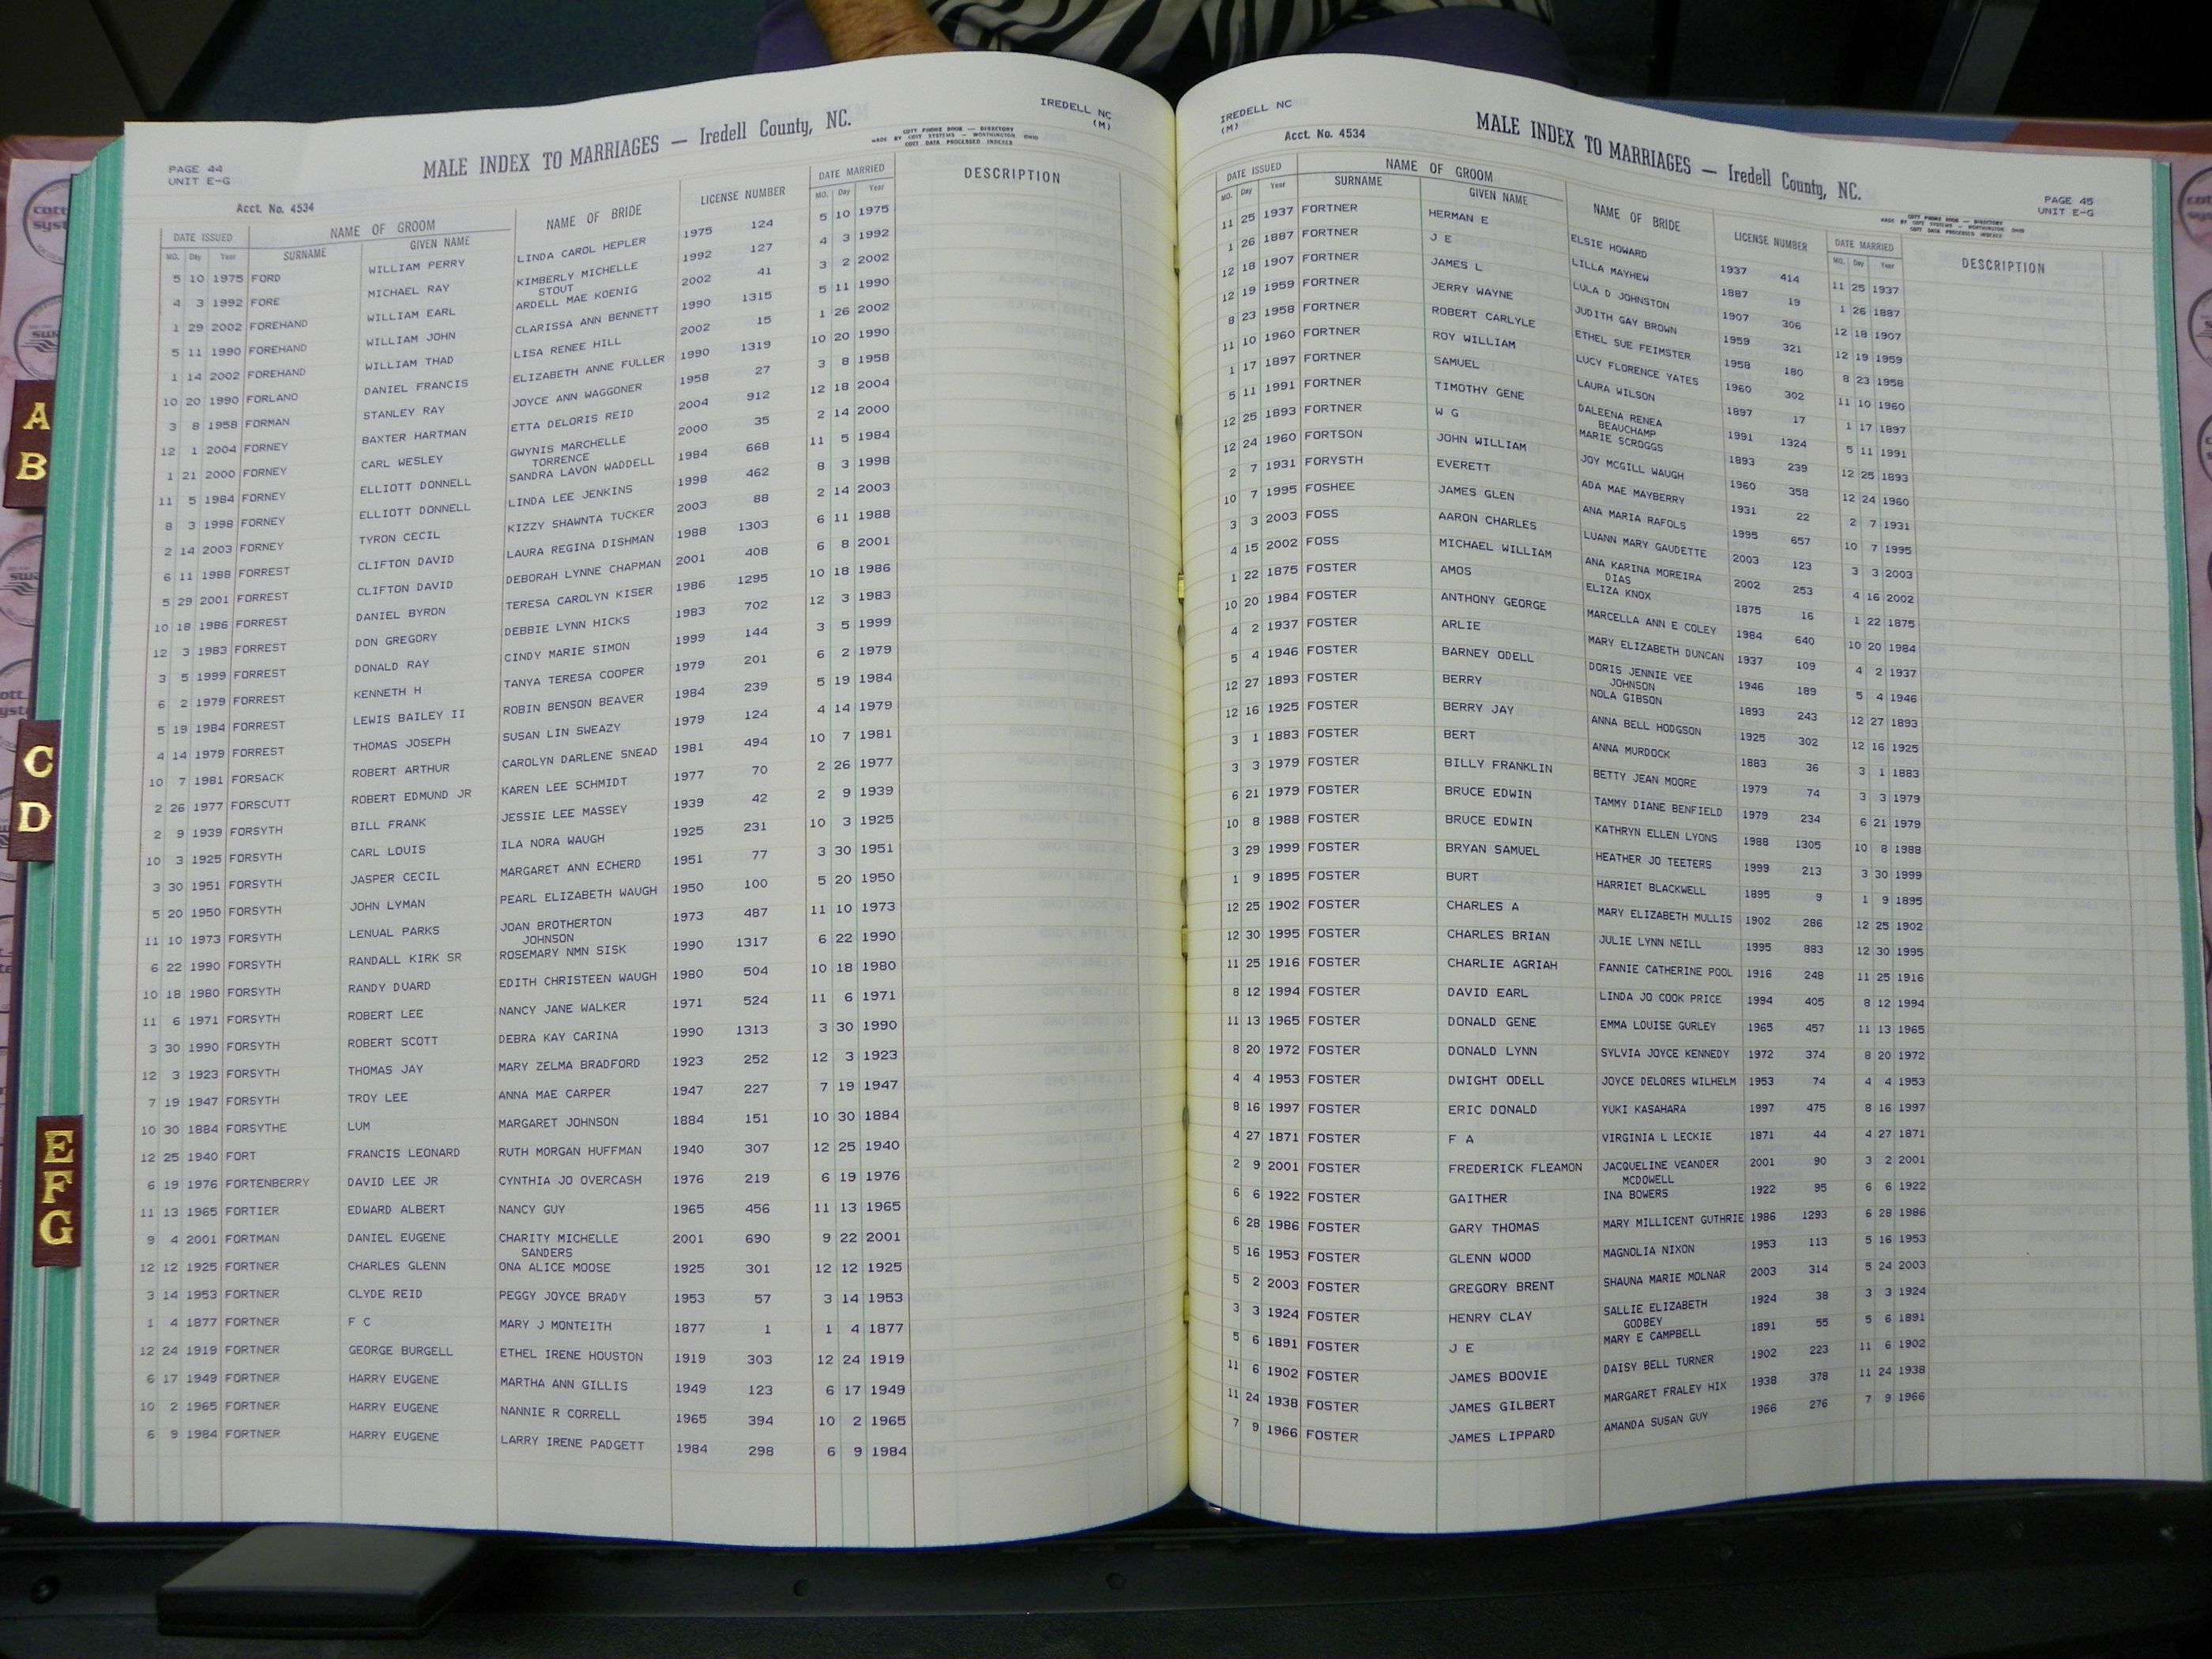 IREDELL NC
(M)
MALE INDEX TO MARRIAGES — Iredell County, NC.
COTT PHONE BOOK — DIRECTORY
MADE BY COTT SYSTEMS — WORTHINGTON OHIO
COTT DATA PROCESSED INDEXES
PAGE 44
UNIT E-G
Acct. No. 4534
DATE ISSUED NAME OF GROOM NAME OF BRIDE LICENSE NUMBER DATE MARRIED DESCRIPTION
MO. Day Year SURNAME GIVEN NAME MO. Day Year
5 10 1975 FORD WILLIAM PERRY LINDA CAROL HEPLER 1975 124 5 10 1975
4 3 1992 FORE MICHAEL RAY KIMBERLY MICHELLE 1992 127 4 3 1992
STOUT
1 29 2002 FOREHAND WILLIAM EARL ARDELL MAE KOENIG 2002 41 3 2 2002
5 11 1990 FOREHAND WILLIAM JOHN CLARISSA ANN BENNETT 1990 1315 5 11 1990
1 14 2002 FOREHAND WILLIAM THAD LISA RENEE HILL 2002 15 1 26 2002
10 20 1990 FORLANO DANIEL FRANCIS ELIZABETH ANNE FULLER 1990 1319 10 20 1990
3 8 1958 FORMAN STANLEY RAY JOYCE ANN WAGGONER 1958 27 3 8 1958
12 1 2004 FORNEY BAXTER HARTMAN ETTA DELORIS REID 2004 912 12 18 2004
1 21 2000 FORNEY CARL WESLEY GWYNIS MARCHELLE 2000 35 2 14 2000
TORRENCE
11 5 1984 FORNEY ELLIOTT DONNELL SANDRA LAVON WADDELL 1984 668 11 5 1984
8 3 1998 FORNEY ELLIOTT DONNELL LINDA LEE JENKINS 1998 462 8 3 1998
2 14 2003 FORNEY TYRON CECIL KIZZY SHAWNTA TUCKER 2003 88 2 14 2003
6 11 1988 FORREST CLIFTON DAVID LAURA REGINA DISHMAN 1988 1303 6 11 1988
5 29 2001 FORREST CLIFTON DAVID DEBORAH LYNNE CHAPMAN 2001 408 6 8 2001
10 18 1986 FORREST DANIEL BYRON TERESA CAROLYN KISER 1986 1295 10 18 1986
12 3 1983 FORREST DON GREGORY DEBBIE LYNN HICKS 1983 702 12 3 1983
3 5 1999 FORREST DONALD RAY CINDY MARIE SIMON 1999 144 3 5 1999
6 2 1979 FORREST KENNETH H TANYA TERESA COOPER 1979 201 6 2 1979
5 19 1984 FORREST LEWIS BAILEY II ROBIN BENSON BEAVER 1984 239 5 19 1984
4 14 1979 FORREST THOMAS JOSEPH SUSAN LIN SWEAZY 1979 124 4 14 1979
10 7 1981 FORSACK ROBERT ARTHUR CAROLYN DARLENE SNEAD 1981 494 10 7 1981
2 26 1977 FORSCUTT ROBERT EDMUND JR KAREN LEE SCHMIDT 1977 70 2 26 1977
2 9 1939 FORSYTH BILL FRANK JESSIE LEE MASSEY 1939 42 2 9 1939
10 3 1925 FORSYTH CARL LOUIS ILA NORA WAUGH 1925 231 10 3 1925
3 30 1951 FORSYTH JASPER CECIL MARGARET ANN ECHERD 1951 77 3 30 1951
5 20 1950 FORSYTH JOHN LYMAN PEARL ELIZABETH WAUGH 1950 100 5 20 1950
11 10 1973 FORSYTH LENUAL PARKS JOAN BROTHERTON 1973 487 11 10 1973
JOHNSON
6 22 1990 FORSYTH RANDALL KIRK SR ROSEMARY NMN SISK 1990 1317 6 22 1990
10 18 1980 FORSYTH RANDY DUARD EDITH CHRISTEEN WAUGH 1980 504 10 18 1980
11 6 1971 FORSYTH ROBERT LEE NANCY JANE WALKER 1971 524 11 6 1971
3 30 1990 FORSYTH ROBERT SCOTT DEBRA KAY CARINA 1990 1313 3 30 1990
12 3 1923 FORSYTH THOMAS JAY MARY ZELMA BRADFORD 1923 252 12 3 1923
7 19 1947 FORSYTH TROY LEE ANNA MAE CARPER 1947 227 7 19 1947
10 30 1884 FORSYTHE LUM MARGARET JOHNSON 1884 151 10 30 1884
12 25 1940 FORT FRANCIS LEONARD RUTH MORGAN HUFFMAN 1940 307 12 25 1940
6 19 1976 FORTENBERRY DAVID LEE JR CYNTHIA JO OVERCASH 1976 219 6 19 1976
11 13 1965 FORTIER EDWARD ALBERT NANCY GUY 1965 456 11 13 1965
9 4 2001 FORTMAN DANIEL EUGENE CHARITY MICHELLE 2001 690 9 22 2001
SANDERS
12 12 1925 FORTNER CHARLES GLENN ONA ALICE MOOSE 1925 301 12 12 1925
3 14 1953 FORTNER CLYDE REID PEGGY JOYCE BRADY 1953 57 3 14 1953
1 4 1877 FORTNER F C MARY J MONTEITH 1877 1 1 4 1877
12 24 1919 FORTNER GEORGE BURGELL ETHEL IRENE HOUSTON 1919 303 12 24 1919
6 17 1949 FORTNER HARRY EUGENE MARTHA ANN GILLIS 1949 123 6 17 1949
10 2 1965 FORTNER HARRY EUGENE NANNIE R CORRELL 1965 394 10 2 1965
6 9 1984 FORTNER HARRY EUGENE LARRY IRENE PADGETT 1984 298 6 9 1984
IREDELL NC
(M)
Acct. No. 4534
MALE INDEX TO MARRIAGES — Iredell County, NC.
COTT PHONE BOOK — DIRECTORY
MADE BY COTT SYSTEMS — WORTHINGTON OHIO
COTT DATA PROCESSED INDEXES
PAGE 45
UNIT E-G
DATE ISSUED NAME OF GROOM NAME OF BRIDE LICENSE NUMBER DATE MARRIED DESCRIPTION
MO. Day Year SURNAME GIVEN NAME MO. Day Year
11 25 1937 FORTNER HERMAN E ELSIE HOWARD 1937 414 11 25 1937
1 26 1887 FORTNER J E LILLA MAYHEW 1887 19 1 26 1887
12 18 1907 FORTNER JAMES L LULA D JOHNSTON 1907 306 12 18 1907
12 19 1959 FORTNER JERRY WAYNE JUDITH GAY BROWN 1959 321 12 19 1959
8 23 1958 FORTNER ROBERT CARLYLE ETHEL SUE FEIMSTER 1958 180 8 23 1958
11 10 1960 FORTNER ROY WILLIAM LUCY FLORENCE YATES 1960 302 11 10 1960
1 17 1897 FORTNER SAMUEL LAURA WILSON 1897 17 1 17 1897
5 11 1991 FORTNER TIMOTHY GENE DALEENA RENEA 1991 1324 5 11 1991
BEAUCHAMP
12 25 1893 FORTNER W G MARIE SCROGGS 1893 239 12 25 1893
12 24 1960 FORTSON JOHN WILLIAM JOY MCGILL WAUGH 1960 358 12 24 1960
2 7 1931 FORYSTH EVERETT ADA MAE MAYBERRY 1931 22 2 7 1931
10 7 1995 FOSHEE JAMES GLEN ANA MARIA RAFOLS 1995 657 10 7 1995
3 3 2003 FOSS AARON CHARLES LUANN MARY GAUDETTE 2003 123 3 3 2003
4 15 2002 FOSS MICHAEL WILLIAM ANA KARINA MOREIRA 2002 253 4 16 2002
DIAS
1 22 1875 FOSTER AMOS ELIZA KNOX 1875 16 1 22 1875
10 20 1984 FOSTER ANTHONY GEORGE MARCELLA ANN E COLEY 1984 640 10 20 1984
4 2 1937 FOSTER ARLIE MARY ELIZABETH DUNCAN 1937 109 4 2 1937
5 4 1946 FOSTER BARNEY ODELL DORIS JENNIE VEE 1946 189 5 4 1946
JOHNSON
12 27 1893 FOSTER BERRY NOLA GIBSON 1893 243 12 27 1893
12 16 1925 FOSTER BERRY JAY ANNA BELL HODGSON 1925 302 12 16 1925
3 1 1883 FOSTER BERT ANNA MURDOCK 1883 36 3 1 1883
3 3 1979 FOSTER BILLY FRANKLIN BETTY JEAN MOORE 1979 74 3 3 1979
6 21 1979 FOSTER BRUCE EDWIN TAMMY DIANE BENFIELD 1979 234 6 21 1979
10 8 1988 FOSTER BRUCE EDWIN KATHRYN ELLEN LYONS 1988 1305 10 8 1988
3 29 1999 FOSTER BRYAN SAMUEL HEATHER JO TEETERS 1999 213 3 30 1999
1 9 1895 FOSTER BURT HARRIET BLACKWELL 1895 9 1 9 1895
12 25 1902 FOSTER CHARLES A MARY ELIZABETH MULLIS 1902 286 12 25 1902
12 30 1995 FOSTER CHARLES BRIAN JULIE LYNN NEILL 1995 883 12 30 1995
11 25 1916 FOSTER CHARLIE AGRIAH FANNIE CATHERINE POOL 1916 248 11 25 1916
8 12 1994 FOSTER DAVID EARL LINDA JO COOK PRICE 1994 405 8 12 1994
11 13 1965 FOSTER DONALD GENE EMMA LOUISE GURLEY 1965 457 11 13 1965
8 20 1972 FOSTER DONALD LYNN SYLVIA JOYCE KENNEDY 1972 374 8 20 1972
4 4 1953 FOSTER DWIGHT ODELL JOYCE DELORES WILHELM 1953 74 4 4 1953
8 16 1997 FOSTER ERIC DONALD YUKI KASAHARA 1997 475 8 16 1997
4 27 1871 FOSTER F A VIRGINIA L LECKIE 1871 44 4 27 1871
2 9 2001 FOSTER FREDERICK FLEAMON JACQUELINE VEANDER 2001 90 3 2 2001
MCDOWELL
6 6 1922 FOSTER GAITHER INA BOWERS 1922 95 6 6 1922
6 28 1986 FOSTER GARY THOMAS MARY MILLICENT GUTHRIE 1986 1293 6 28 1986
5 16 1953 FOSTER GLENN WOOD MAGNOLIA NIXON 1953 113 5 16 1953
5 2 2003 FOSTER GREGORY BRENT SHAUNA MARIE MOLNAR 2003 314 5 24 2003
3 3 1924 FOSTER HENRY CLAY SALLIE ELIZABETH 1924 38 3 3 1924
GODBEY
5 6 1891 FOSTER J E MARY E CAMPBELL 1891 55 5 6 1891
11 6 1902 FOSTER JAMES BOOVIE DAISY BELL TURNER 1902 223 11 6 1902
11 24 1938 FOSTER JAMES GILBERT MARGARET FRALEY HIX 1938 378 11 24 1938
7 9 1966 FOSTER JAMES LIPPARD AMANDA SUSAN GUY 1966 276 7 9 1966
A
B
C
D
E
F
G